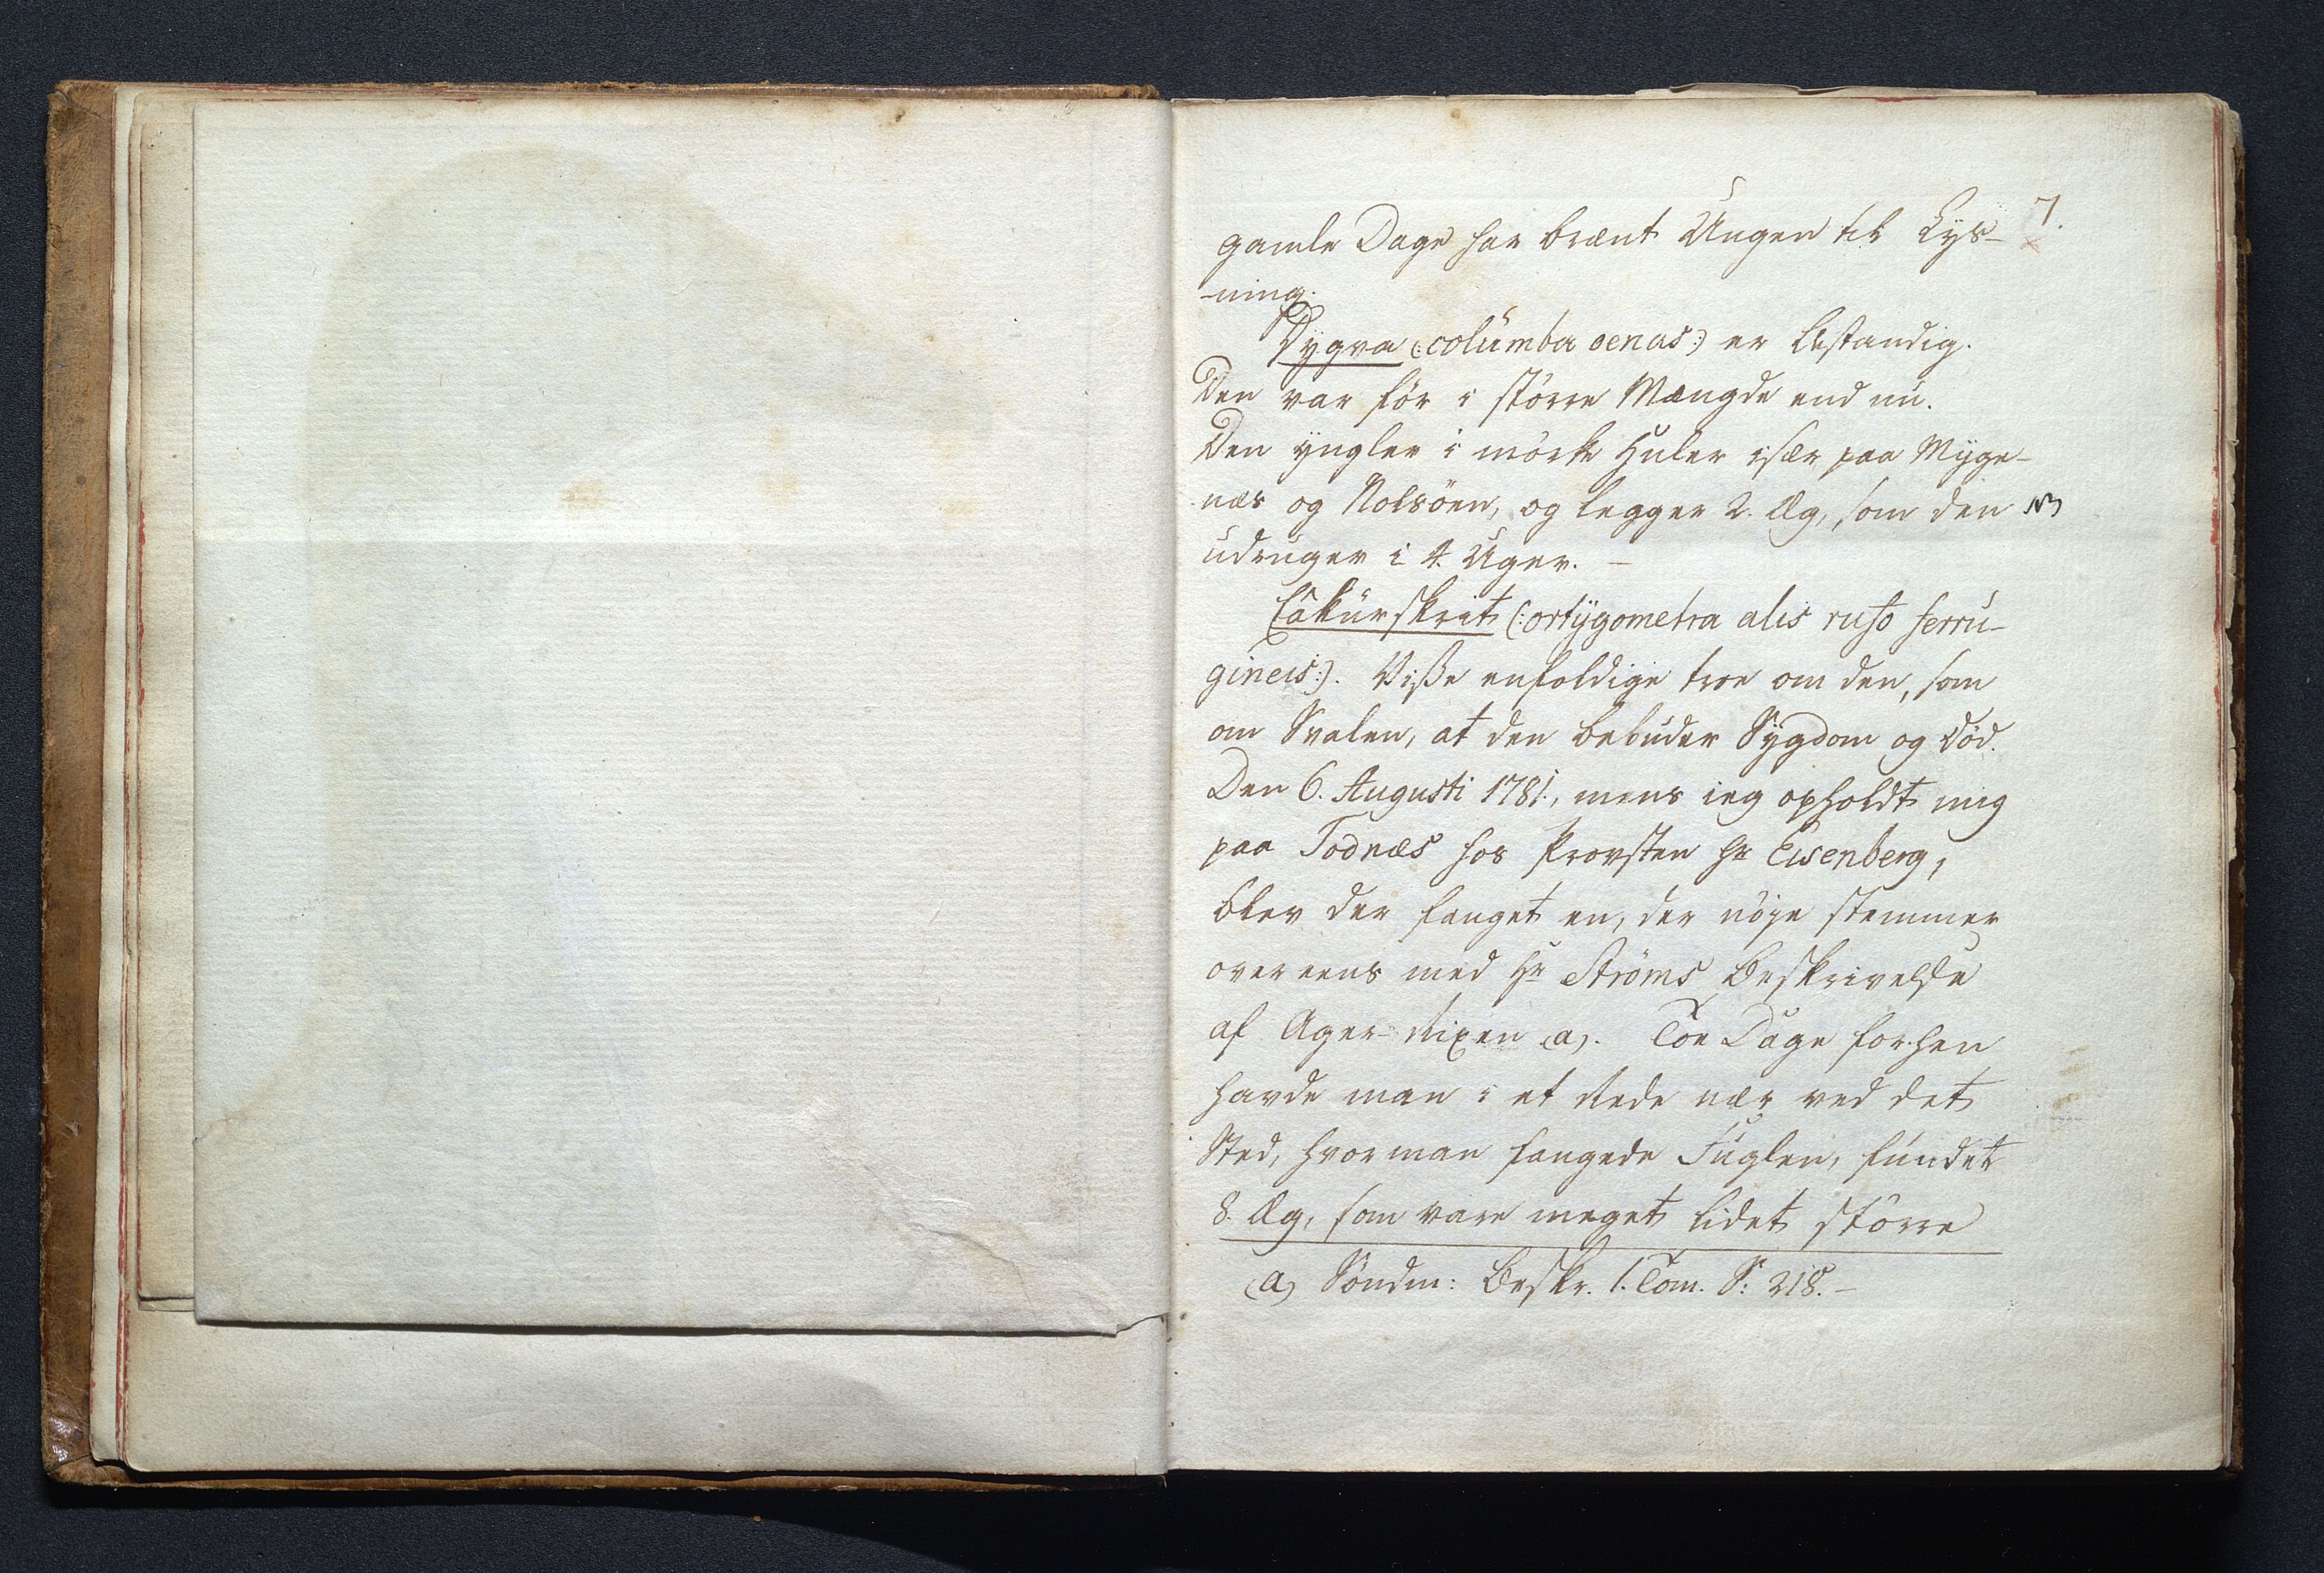 7.
gamle Dage har brænt Ungen til Lys-
-ning.
Dygva (:columba oenas:) er bestandig.
Den var før i större Mængde end nu.
Den yngler i mørke Huler især paa Myge-
næs og Nolsöen, og legger 2. Æg, som den
udruger i 4. Uger. -
(:ortygometra alis rufo ferru-
gineis:). Viße enfoldige troe om den, som
om Svalen, at den bebuder Sygdom og Død.
Den 6. Augusti 1781., mens ieg opholdt mig
paa Todnæs hos Provsten Hr Eisenberg,
blev der fanget en, der nöye stemmer
overeens med Hr Ströms Beskrivelse
af Ager-Rixen (a). Toe Dage forhen
havde man i et Rede nær ved det
Sted, hvor man fangede Fuglen, fundet
8. Æg, som vare meget lidet större
(a) Söndm: Beskr. 1. Tom. S: 218. -